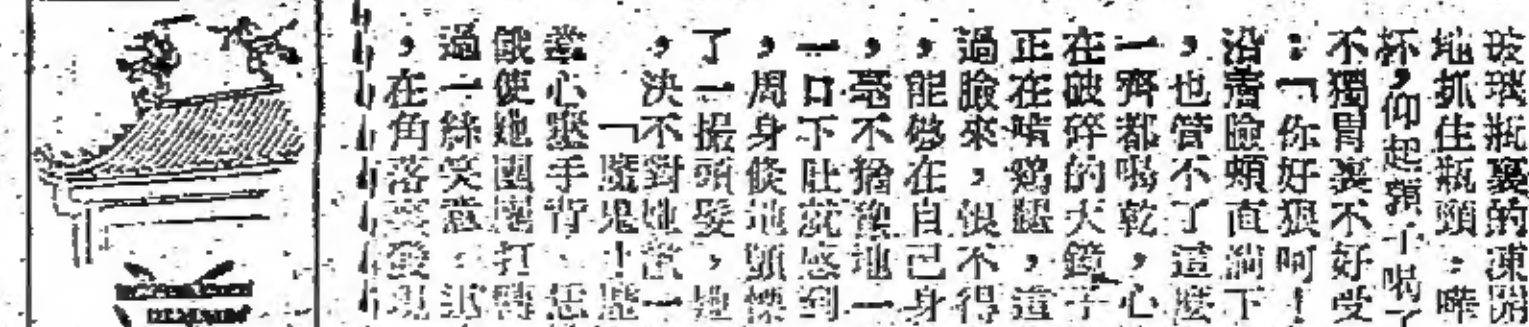 玻璃瓶裏的凍開
地抓住瓶頸,嘩
杯,仰起頸子喝了
不獨胃裏不好受
:「你好狠呵!
沿着臉頰直淌下
,也管不了這麼
一齊都喝乾,心
在破碎的大鏡子
正在啃鷄腿,這
過臉來,恨不得
,能够在自己身
,毫不猶豫地一
一口下肚就感到
,周身倏地顫慄
了一撮頭髮,
,決不對她
「魔鬼!
心 手背,
餓 使她團團打轉
過一絲笑意
,在角落裏發現